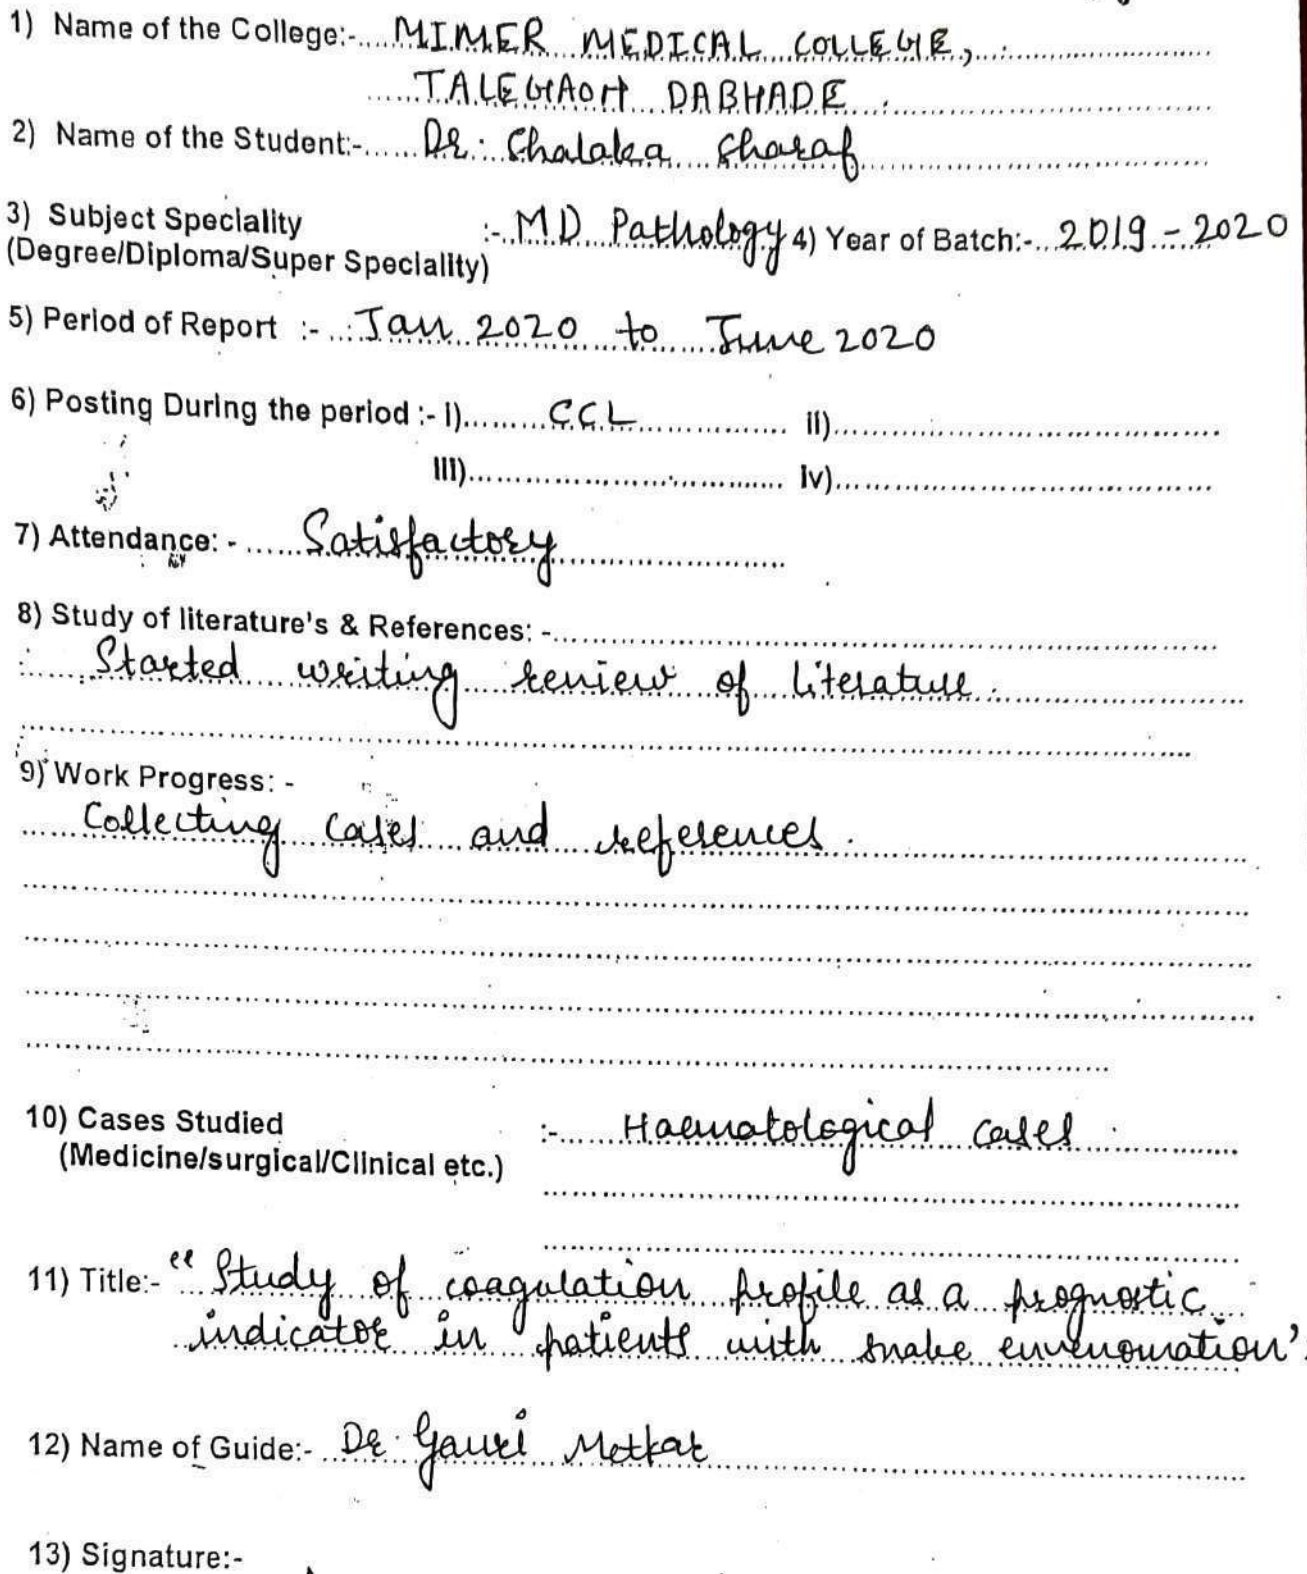 1) Name of the College:- MIMER MEDICAL COLLEGE,
TALEGAON DABHADE
2) Name of the Student:- Dr. Shalaka Sharaf
3) Subject Speciality :- MD Pathology 4) Year of Batch:- 2019 - 2020
(Degree/Diploma/Super Speciality)
5) Period of Report :- Jan 2020 to June 2020
6) Posting During the period :- i) CCL ii)
iii) iv)
7) Attendance: - Satisfactory
8) Study of literature's & References: -
Started writing review of literature.
9) Work Progress: -
Collecting cases and references.
10) Cases Studied :- Haematological cases.
(Medicine/surgical/Clinical etc.)
11) Title:- "Study of coagulation profile as a prognostic
indicator in patients with snake envenomation".
12) Name of Guide:- Dr. Gauri Metkar
13) Signature:-